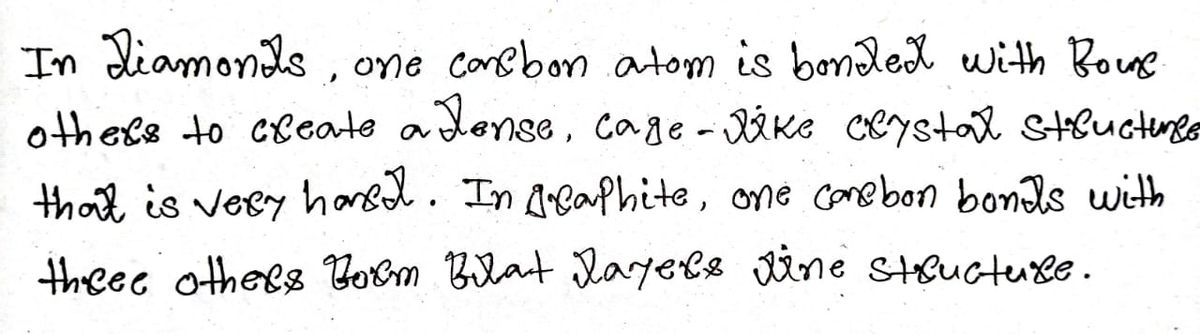 In diamonds, one carbon atom is bonded with four
others to create a dense, cage-like crystal structure
that is very hard. In graphite, one carbon bonds with
three others form flat layers line structure.